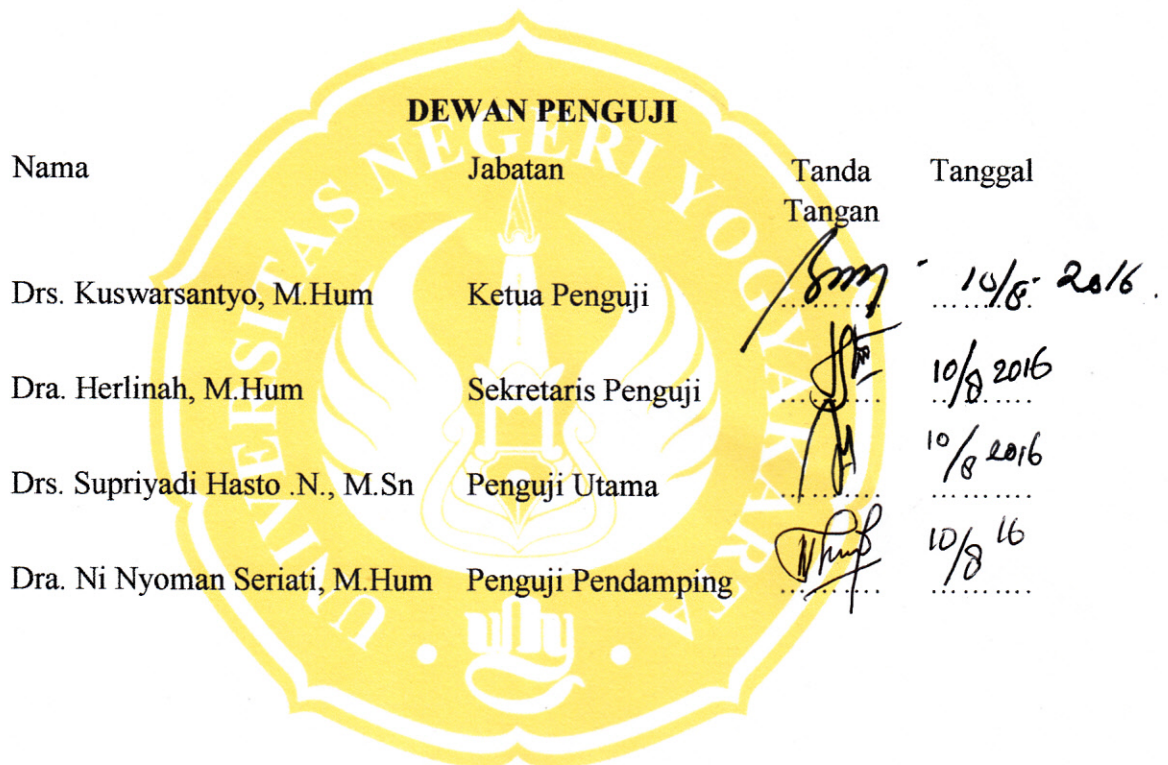 DEWAN PENGUJI
Nama Jabatan Tanda Tangan Tanggal
Drs. Kuswarsantyo, M.Hum Ketua Penguji .......... 10/8 2016
Dra. Herlinah, M.Hum Sekretaris Penguji .......... 10/8 2016
Drs. Supriyadi Hasto .N., M.Sn Penguji Utama .......... 10/8 2016
Dra. Ni Nyoman Seriati, M.Hum Penguji Pendamping .......... 10/8 16
UNIVERSITAS NEGERI YOGYAKARTA
uny